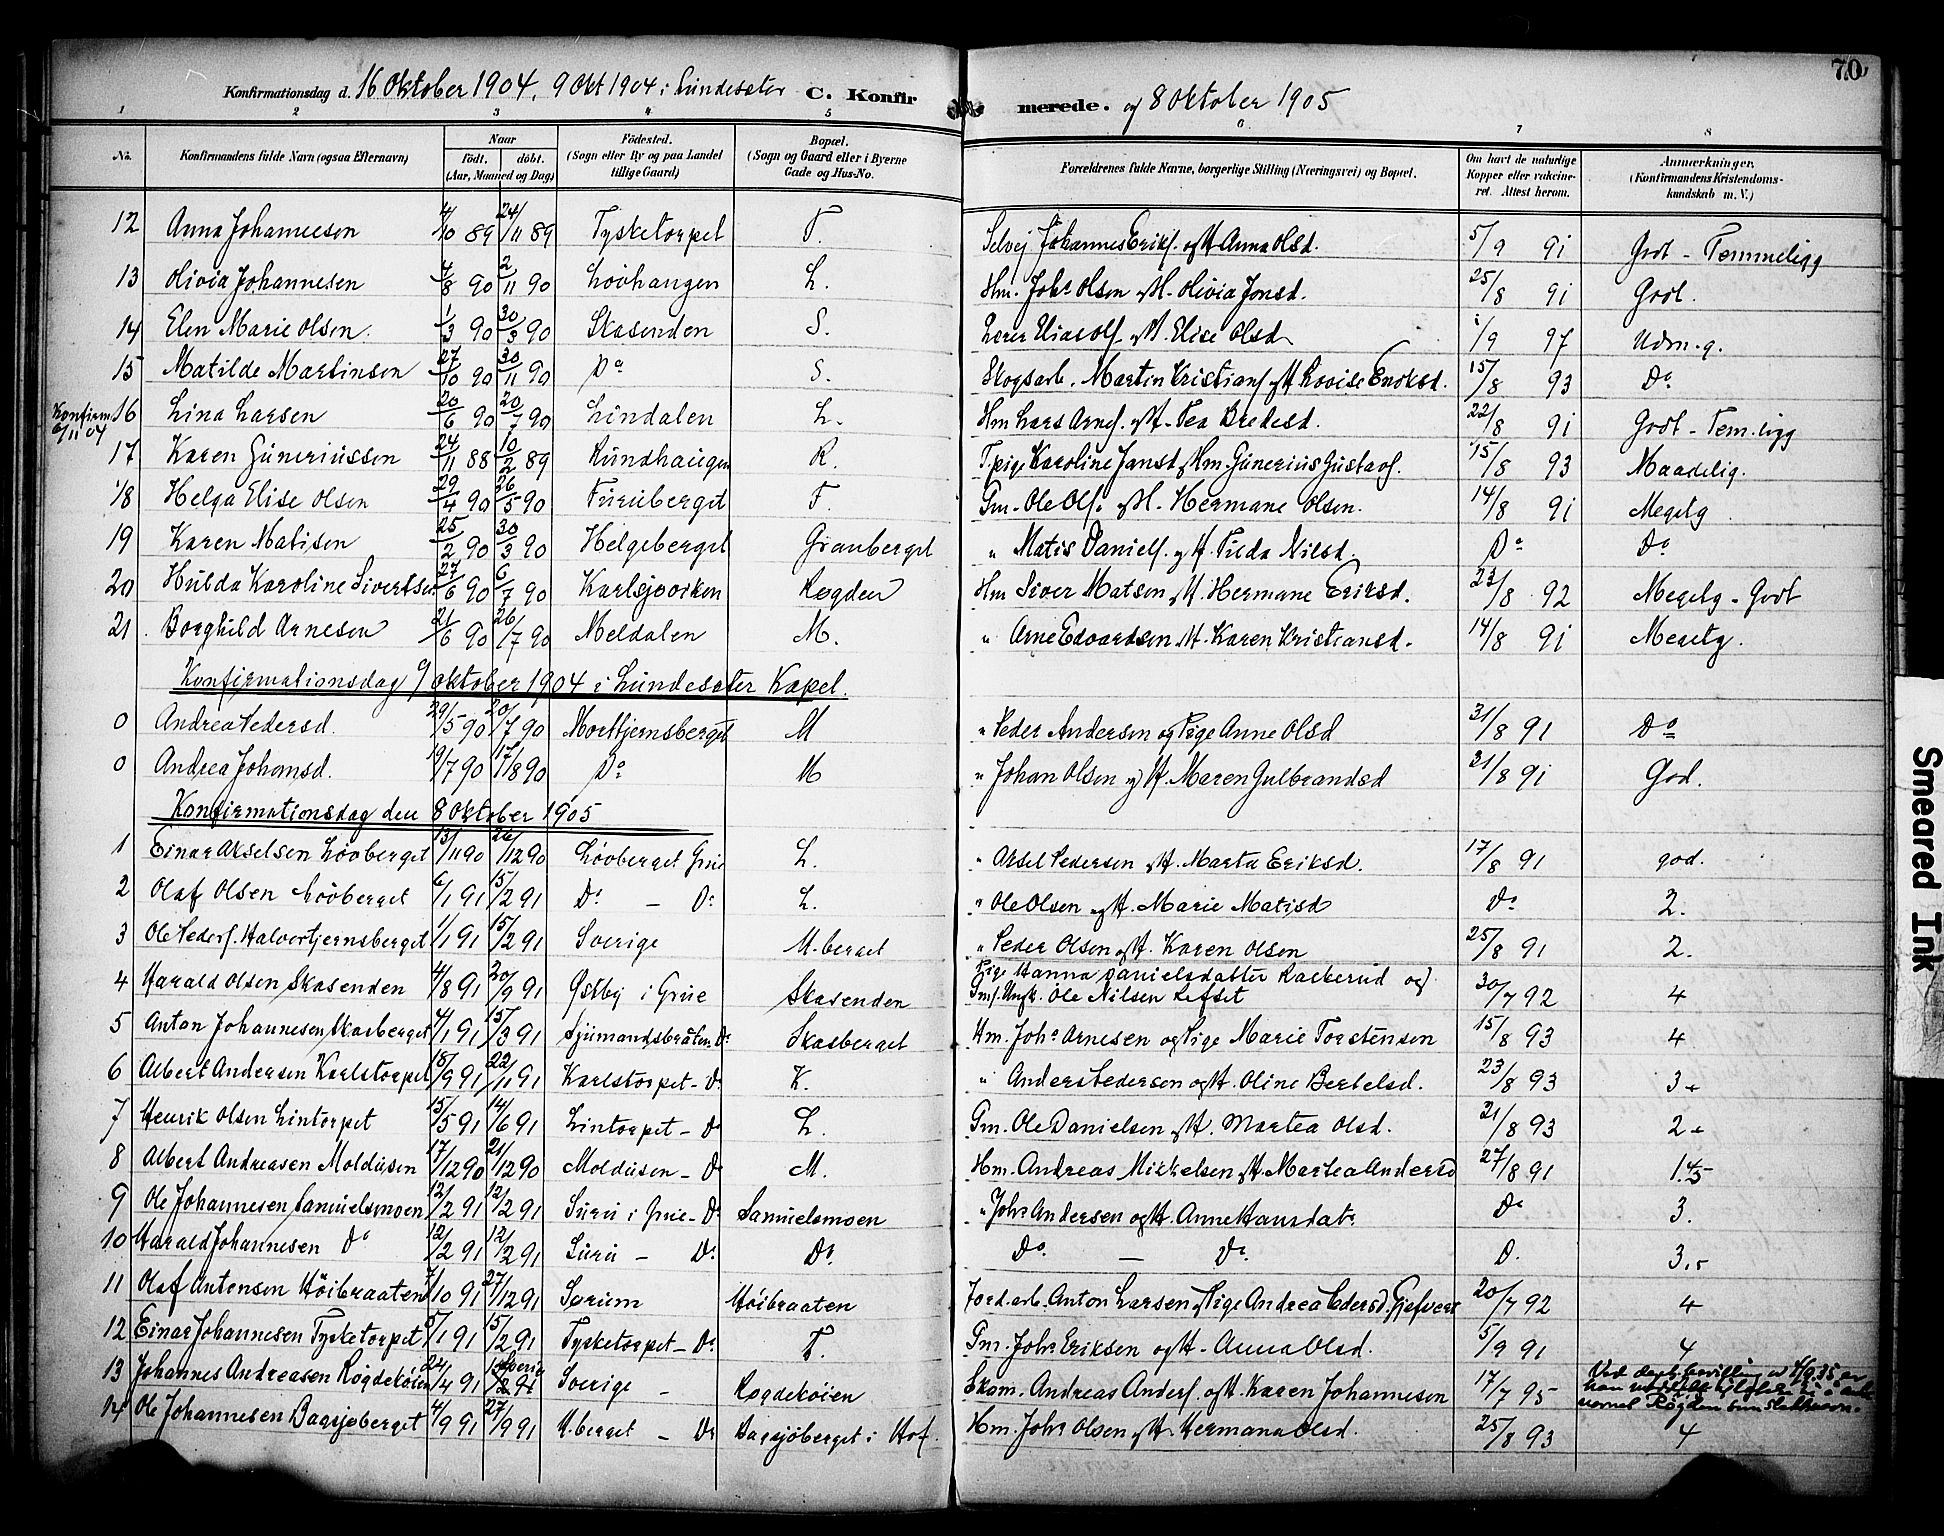 70
Konfirmationsdag d. 16 Oktober 1904. 9 Okt 1904 i Lundesæter C. Konfirmerede. og 8 Oktober 1905
1 2 3 4 5 6 7 8
No. Konfirmandens fulde Navn (ogsaa Efternavn) Naar født. døbt. (Aar, Maaned og Dag) Födested. (Sogn eller By og paa Landet tillige Gaard) Bopæl. (Sogn og Gaard eller i Byerne Gade og Hus-No. Forældrenes fulde Navne, borgerlige Stilling (Næringsvei) og Bopæl. Om havt de naturlige Kopper eller vakcineret. Attest herom. Anmærkninger. (Konfirmandens Kristendomskundskab m. V.)
12 Anna Johannesen 4/10 89 24/11 89 Tysketorpet T. Selvej Johannes Eriks. og H. Anna Olsd. 5/9 91 Godt - Temmeligg
13 Olivia Johannesen 4/8 90 2/11 90 Lövhaugen L. Hm. Johs Olsen og H. Olivia Jonsd. 25/8 91 Godt.
14 Elen Marie Olsen. 1/3 90 30/3 90 Skasenden S. Lærer Elias Ols. og H. Elise Olsd /9 97 Udm. g.
15 Matilde Martinsen 27/10 90 30/11 90 Do S. Skogsarb. Martin Kristians. og H. Lovise Enoksd. 15/8 93 Do
Konfirm 6/11 04
16 Lina Larsen 20/6 90 20/7 90 Lindalen L. Hm Lars Arnes. og H. Tea Bredesd. 22/8 91 Godt - Tem. ligg
17 Karen Guneriussen 24/11 88 10/2 89 Rundhaugen R. T. pige Karoline Jansd og Hm. Gunerius Gustavs. 15/8 93 Maadelig.
18 Helga Elise Olsen 29/4 90 26/5 90 Furuberget F. Gm. Ole Ols. og H. Hermane Olsen. 14/8 91 Megetg
19 Karen Matisen 25/2 90 30/3 90 Helgeberget Granberget " Matis Daniels. og H. Tilda Nilsd. Do Do
20 Hulda Karoline Sivertsen 27/6 90 6/7 90 Karlsjøviken Røgden Hm Siver Matsen og H. Hermane Eriksd. 23/8 92 Megetg - Godt
21 Borghild Arnesen 21/6 90 26/7 90 Meldalen M. " Arne Edvardsen og H. Karen Kristiansd. 14/8 91 Megetg.
Konfirmationsdag 9 Oktober 1904 i Lundesæter Kapel.
0 Andrea Pedersd. 29/5 90 20/7 90 Morttjernsberget M " Peder Andersen og Pige Anne Olsd 31/8 91 Do
0 Andrea Johansd. 19/7 90 17/8 90 Do M " Johan Olsen og H. Maren Gulbrandsd 31/8 91 God.
Konfirmationsdag den 8 Oktober 1905
1 Einar Akselsen Lövberget 13/11 90 26/12 90 Lövberget Grue L. " Aksel Pedersen og H. Marta Eriksd. 17/8 91 god.
2 Olaf Olsen Lövberget 6/1 91 15/2 91 Do - Do L. " Ole Olsen og H. Marie Matisd Do 2.
3 Ole Peders. Halvortjernsberget 1/1 91 15/2 91 Sverige H. berget " Peder Olsen og H. Karen Olsen 25/8 91 2.
4 Harald Olsen Skasenden 4/8 91 20/9 91 Østby i Grue Skasenden Pige Hanna Danielsdatter Rakkerud og Gms. Ungk. Ole Nilsen Refset 30/7 92 4
5 Anton Johannesen Skasberget 4/1 91 15/3 91 Sjumandsbråten Do Skasberget Hm. Johs Arnesen og Pige Marie Torstensen 15/8 93 4
6 Albert Andersen Karlstorpet 18/9 91 22/11 91 Karlstorpet - Do K. " Anders Pedersen og H. Oline Bertelsd. 23/8 93 3+
7 Henrik Olsen Lintorpet 15/5 91 14/6 91 Lintorpet - Do L. Gm. Ole Danielsen og H. Martea Olsd. 21/8 93 2+
8 Albert Andreasen Moldusen 17/12 90 21/12 90 Moldusen - Do M. Hm. Andreas Mikkelsen og H. Martea Andersd 27/8 91 1.5
9 Ole Johannesen Samuelsmoen 12/2 91 12/2 91 Suru i Grue - Do Samuelsmoen " Johs Andersen og H. Anne Hansdatr Do 3.
10 Harald Johannesen Do 12/2 91 12/2 91 Suru - Do Do. Do - Do D. 3,5
11 Olaf Antonsen Höibraaten 7/10 91 27/12 91 Sørum Höibraaten Jord. arb. Anton Larsen og Pige Andrea Pedersd. 20/7 92 4
12 Einar Johannesen Tysketorpet 5/1 91 15/2 91 Tysketorpet - Do T. Gm. Johs Eriksen og H. Anna Olsd. 5/9 91 4
13 Johannes Andreasen Røgdekøien 24/4 91 Sverige Sverige - Rogdekøien Skom. Andreas Anders. og H. Karen Johannesen 17/7 95 Ved bevilling 4/9.35 er han Røgden som Slektsnavn.
14 Ole Johannesen Bagsjøberget 4/9 91 27/9 91 H. berget - Do Bagsjöberget i Hof. Hm. Johs Olsen og H. Hermana Olsd. 25/8 93 4
Smeared Ink